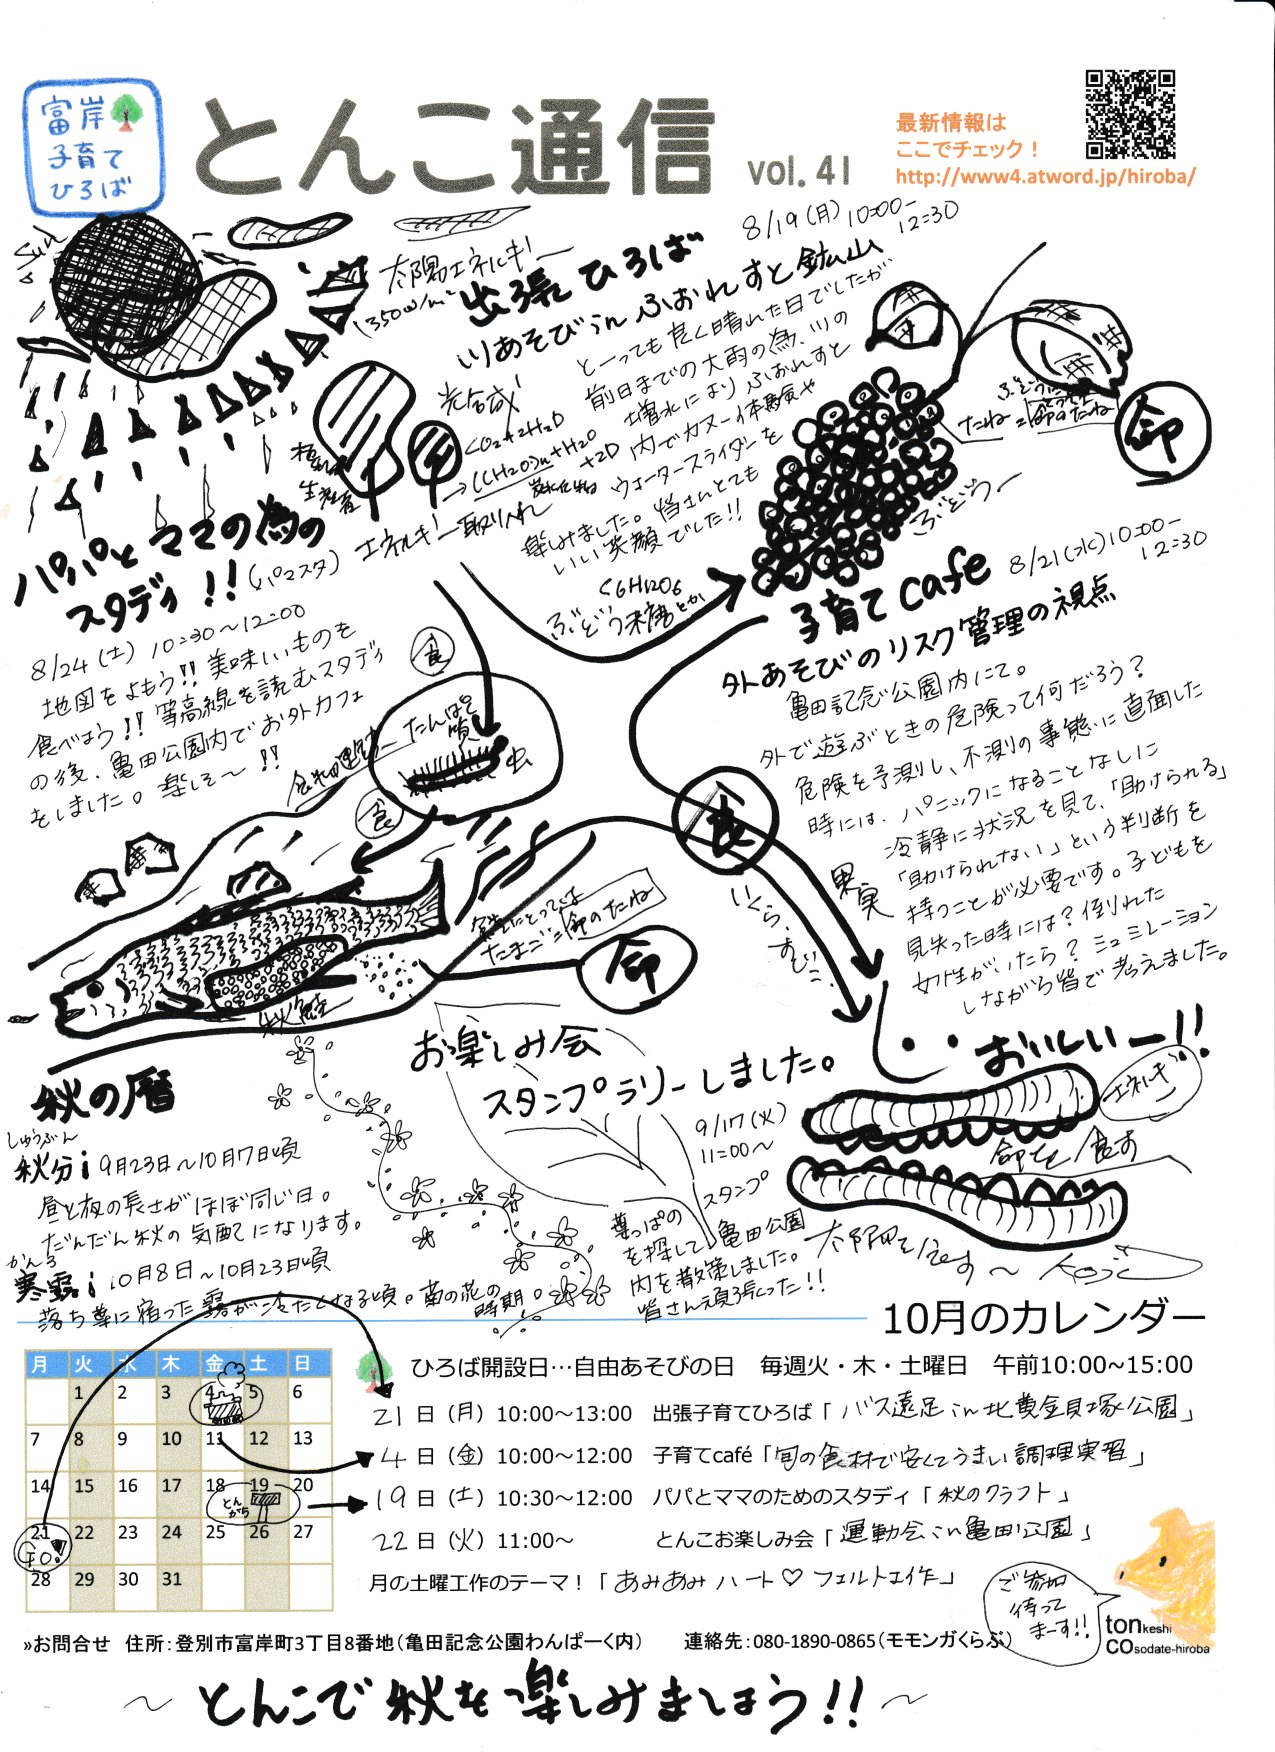 富岸
子育て
ひろば
とんこ通信 vol. 41
最新情報は
ここでチェック！
http://www4.atword.jp/hiroba/
Sun
太陽エネルギー
1350w/m²
8/19(月)10:00-
12:30
出張ひろば
川あそびinふぉれすと鉱山
とーっても良く晴れた日でしたが
前日までの大雨の為、川の
増水によりふぉれすと
内でカヌー体験や
ウォータースライダーを
楽しみました。皆さんとても
いい笑顔でした!!
光合成!
CO2+2H2O
→(CH2O)n+H2O
+2O
炭水化物
植物は
生産者
エネルギー取り入れ
C6H12O6
ぶどう糖とか
ぶどうー
たね=命のたね
命
パパとママの為の
スタディ!!(パマスタ)
8/24(土)10:30～12:00
地図をよもう!!美味しいものを
食べよう!!等高線を読むスタディ
の後、亀田公園内でお外カフェ
をしました。楽しそ～!!
食
たんぱく
質
虫
食
食
子育てcafe 8/21(水)10:00-
12:30
外あそびのリスク管理の視点
亀田記念公園内にて。
外で遊ぶときの危険って何だろう？
危険を予測し、不測の事態に直面した
時には、パニックになることなしに
冷静に状況を見て、「助けられる」
「助けられない」という判断を
持つことが必要です。子どもを
見失った時には？倒れた
女性がいたら？シュミレーション
しながら皆で考えました。
果実
いくら、すじこ
鮭にとっては
たまご=命のたね
命
秋鮭
おいしいー!!
エネルギー
命を食す
太陽を食す～
Koji
お楽しみ会
スタンプラリーしました。
9/17(火)
11:00～
スタンプ
葉っぱの
を探して亀田公園
内を散策しました。
皆さん頑張った!!
秋の暦
しゅうぶん
秋分; 9月23日～10月7日頃
昼と夜の長さがほぼ同じ日。
だんだん秋の気配になります。
かんろ
寒露; 10月8日～10月23日頃
落ち葉に宿った露が冷たくなる頃。菊の花の
時期。
10月のカレンダー
月 火 水 木 金 土 日
1 2 3 4 5 6
7 8 9 10 11 12 13
14 15 16 17 18 19 20
とんがち
21 22 23 24 25 26 27
GO!
28 29 30 31
ひろば開設日…自由あそびの日　毎週火・木・土曜日　午前10:00～15:00
21日（月）10:00～13:00　出張子育てひろば「バス遠足in北黄金貝塚公園」
4日（金）10:00～12:00　子育てcafé「旬の食材で安くてうまい調理実習」
19日（土）10:30～12:00　パパとママのためのスタディ「秋のクラフト」
22日（火）11:00～　とんこお楽しみ会「運動会in亀田公園」
月の土曜工作のテーマ！「あみあみハート♡フェルト工作」
ご参加
待って
まーす!!
tonkeshi
COsodate-hiroba
»お問合せ　住所：登別市富岸町3丁目8番地（亀田記念公園わんぱーく内）　連絡先：080-1890-0865（モモンガくらぶ）
～とんこで秋を楽しみましょう!!～